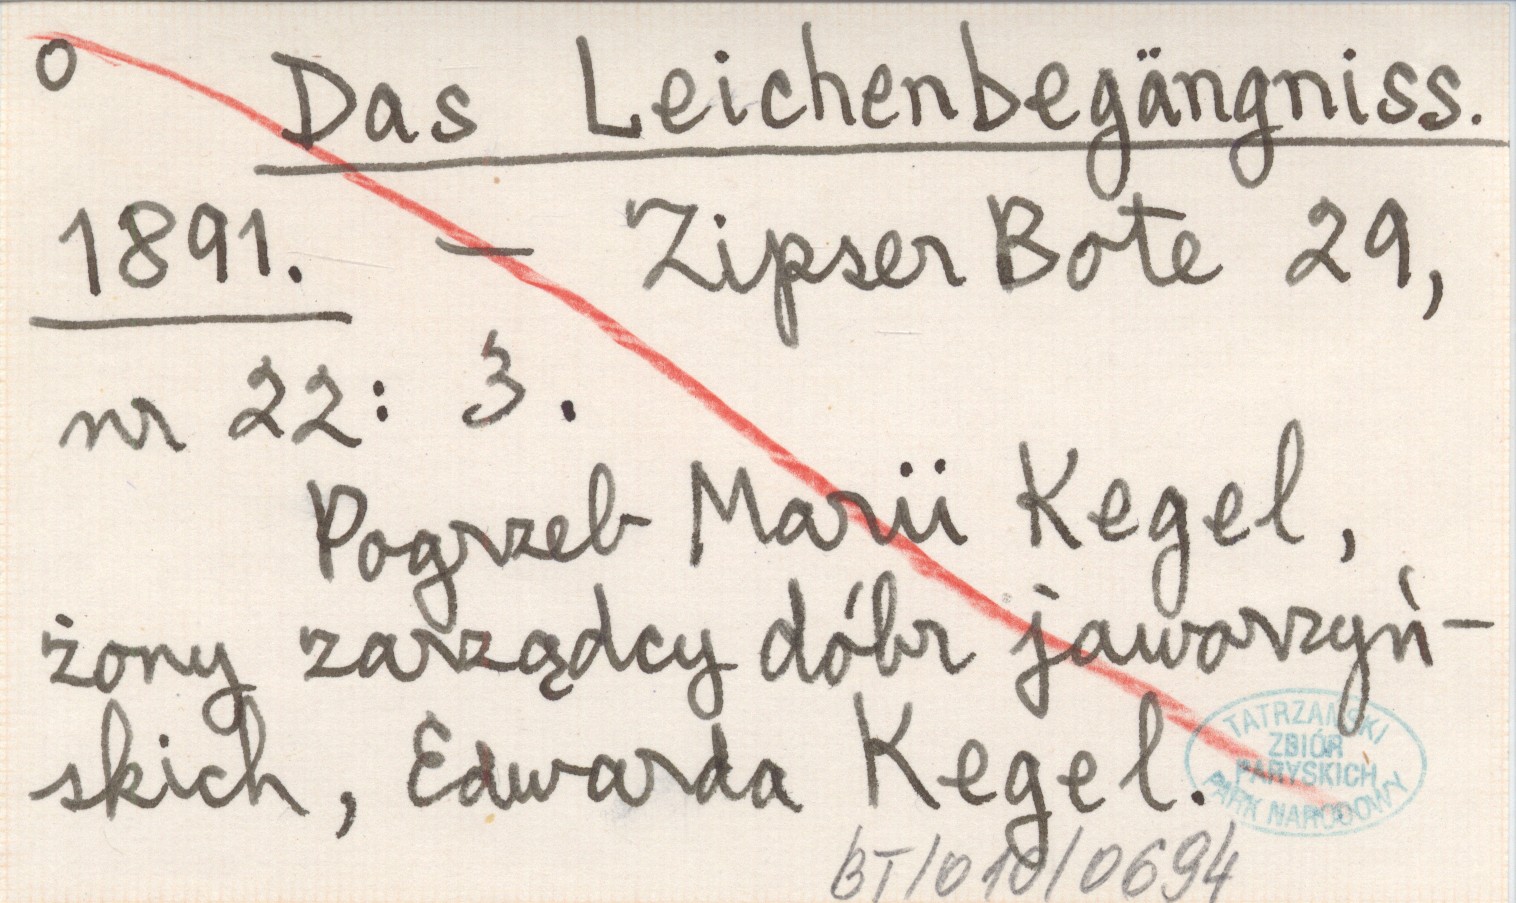 o Das Leichenbegängniss.
1891. — Zipser Bote 29,
nr 22: 3.
Pogrzeb Marii Kegel,
żony zarządcy dóbr jaworzyń-
skich, Edwarda Kegel.
TATRZAŃSKI
ZBIÓR
PARYSKICH
PARK NARODOWY
BT/010/0694